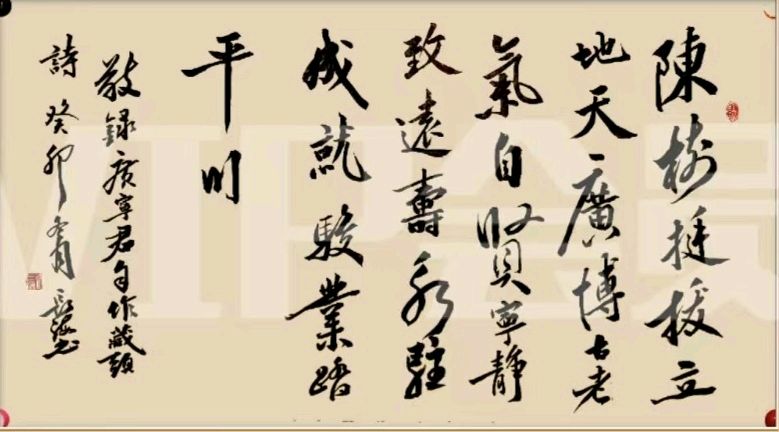 陳樹挺拔立
地天廣博古老
氣自賢寧靜
致遠壽永駐
成就駿業踏
平川
敬録廣寧君自作藏頭
詩 癸卯冬月
VIP会员